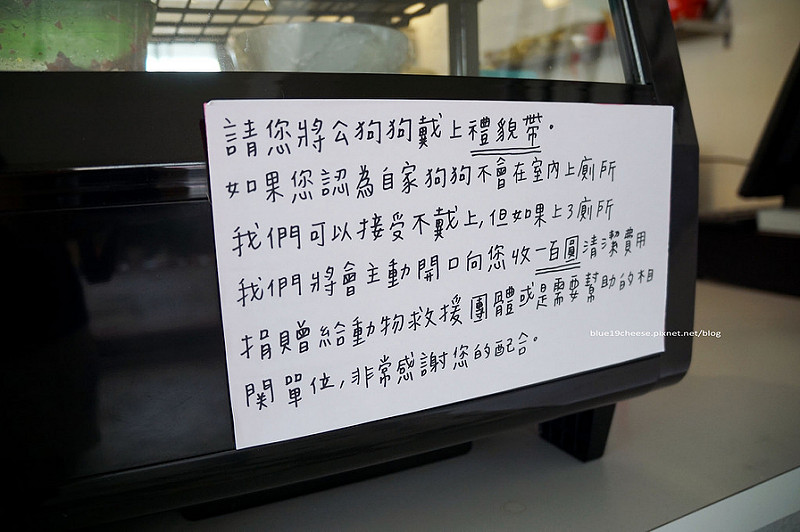 請您將公狗狗戴上禮貌帶。
如果您認為自家狗狗不會在室內上廁所
我們可以接受不戴上,但如果上了廁所
我們將會主動開口向您收一百圓清潔費用
捐贈給動物救援團體或是需要幫助的相
關單位,非常感謝您的配合。
blue19cheese.pixnet.net/blog